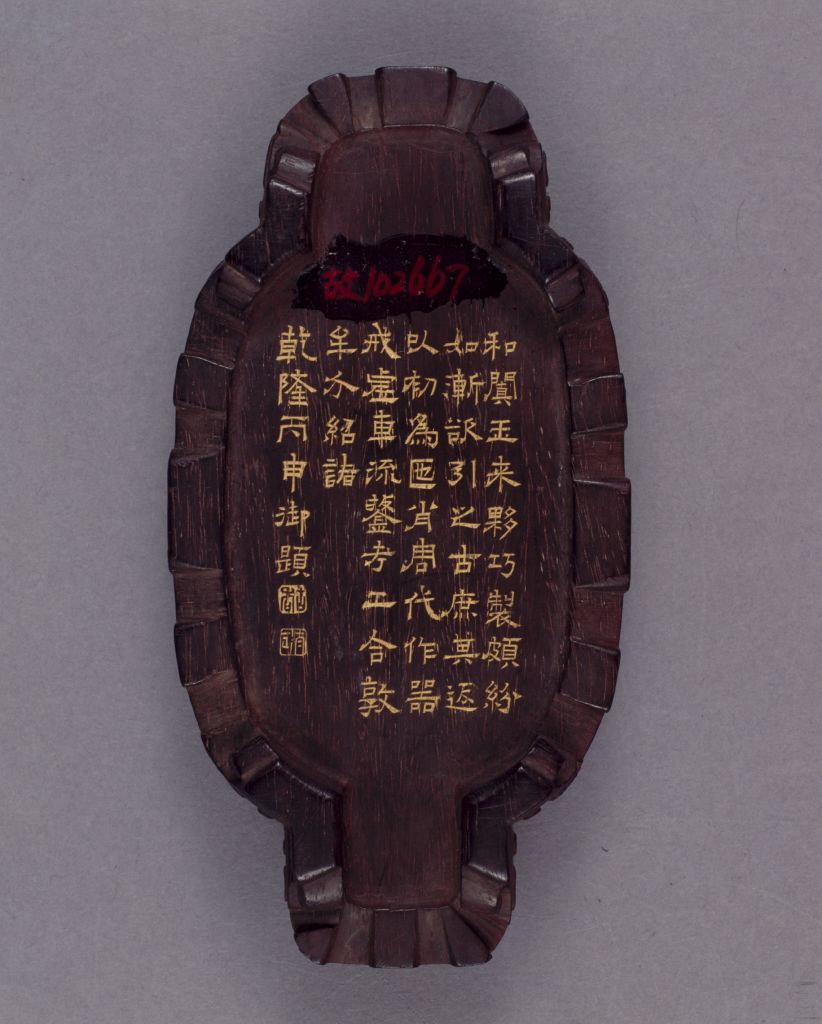 故102667
和闐玉来夥巧製頗紛
如漸欲引之古庶其返
以初為匜肖周代作器
戒虛車流鋬考工合敦
牟介紹諸
乾隆丙申御題